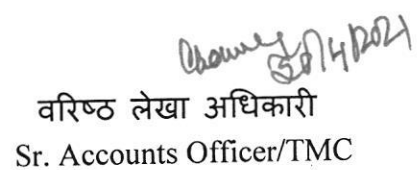 30/4/2021
वरिष्ठ लेखा अधिकारी
Sr. Accounts Officer/TMC